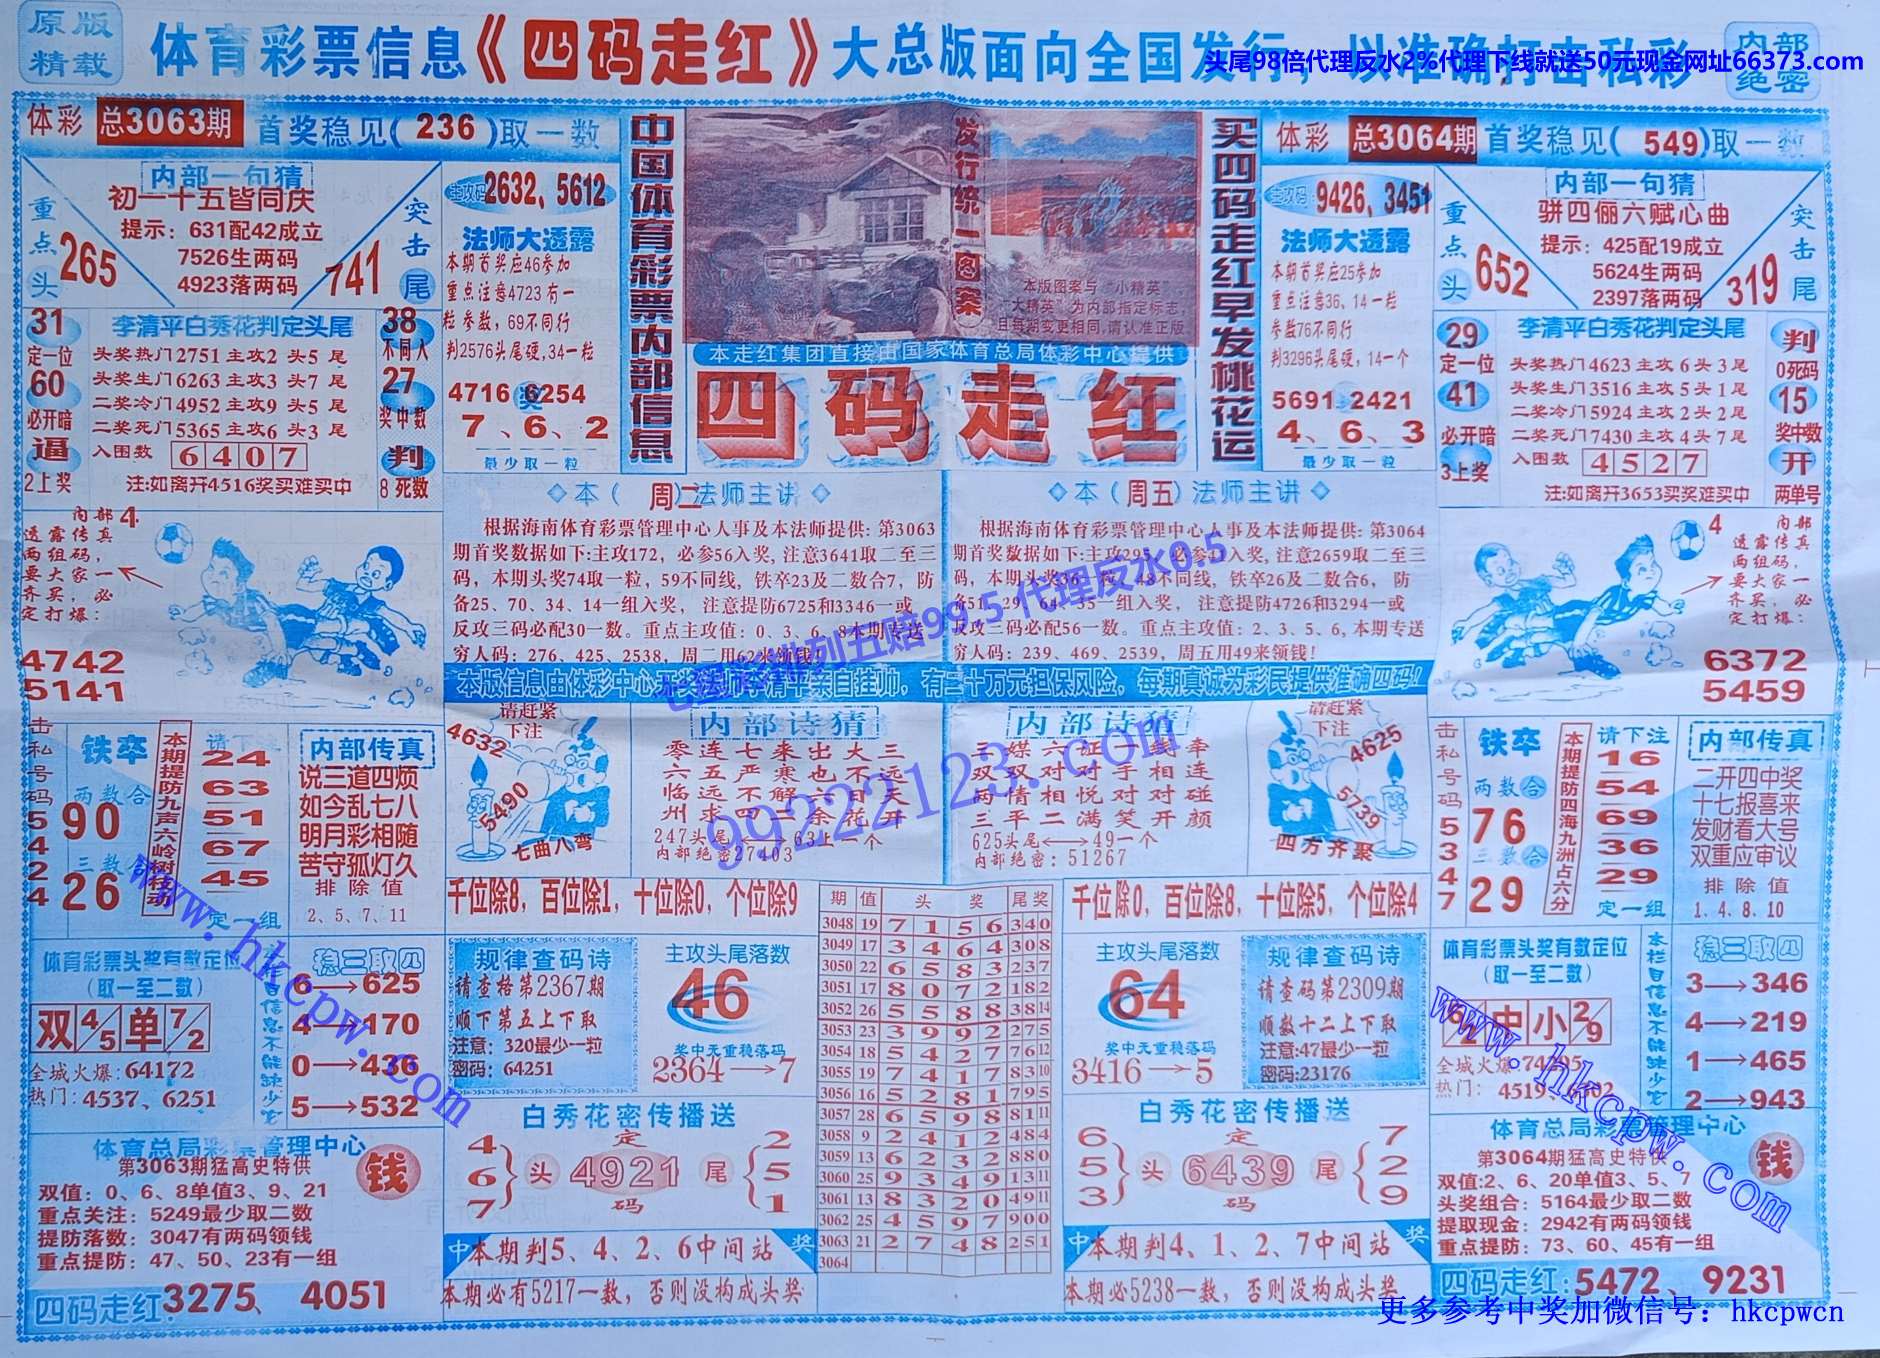 原版
精载
体育彩票信息《四码走红》大总版面向全国发行，以准确打击私彩
内部
绝密
头尾98倍代理反水2%代理下线就送50元现金网址66373.com
体彩 总3063期 首奖稳见(236)取一数
内部一句猜
初一十五皆同庆
提示：631配42成立
7526生两码
4923落两码
重点头
265
突击尾
741
主攻码
2632、5612
法师大透露
本期首奖应46参加
重点注意4723有一
粒参数，69不同行
判2576头尾硬，34一粒
4716 奖 6254
7、6、2
最少取一粒
31
定一位
60
必开暗
逼
2上奖
李清平白秀花判定头尾
头奖热门2751主攻2 头5 尾
头奖生门6263主攻3 头7 尾
二奖冷门4952主攻9 头5 尾
二奖死门5365主攻6 头3 尾
入围数 6407
注:如离开4516奖买难买中
38
不同入
27
奖中数
判
8死数
中国体育彩票内部信息
发行统一图案
本版图案与“小精英”
“大精英”为内部指定标志
且每期变更相同,请认准正版
本走红集团直接由国家体育总局体彩中心提供
四码走红
买四码走红早发桃花运
体彩 总3064期 首奖稳见(549)取一数
主攻码
9426、3451
法师大透露
本期首奖应25参加
重点注意36、14一粒
参数76不同行
判3296头尾硬，14一个
5691 2421
4、6、3
最少取一粒
内部一句猜
骈四俪六赋心曲
提示：425配19成立
5624生两码
2397落两码
重点头
652
突击尾
319
29
定一位
41
必开暗
3上奖
李清平白秀花判定头尾
头奖热门4623主攻6头3尾
头奖生门3516主攻5头1尾
二奖冷门5924主攻2头2尾
二奖死门7430主攻4头7尾
入围数 4527
注:如离开3653买奖难买中
判
0死码
15
奖中数
开
两单号
◇本（周二）法师主讲◇
根据海南体育彩票管理中心人事及本法师提供:第3063
期首奖数据如下:主攻172，必参56入奖,注意3641取二至三
码，本期头奖74取一粒，59不同线，铁卒23及二数合7，防
备25、70、34、14一组入奖， 注意提防6725和3346一或
反攻三码必配30一数。重点主攻值：0、3、6、8本期专送
穷人码：276、425、2538，周二用62来领钱!
◇本（周五）法师主讲◇
根据海南体育彩票管理中心人事及本法师提供:第3064
期首奖数据如下:主攻295，必参 入奖,注意2659取二至三
码，本期头奖36一粒，48不同线，铁卒26及二数合6，防
备51、29、64、35一组入奖， 注意提防4726和3294一或
反攻三码必配56一数。重点主攻值：2、3、5、6,本期专送
穷人码：239、469、2539，周五用49来领钱!
本版信息由体彩中心 李清平亲自挂帅，有二十万元担保风险，每期真诚为彩民提供准确四码!
七星彩排列五赔99.5 代理反水0.5
99222123.com
内部
透露传真
两组码，
要大家一
齐买，必
定打爆：
4
4742
5141
4
内部
透露传真
两组码，
要大家一
齐买，必
定打爆：
6372
5459
击私号码5424
铁卒
两数合
90
三数合
26
本期提防九声六岭树枝动
请下注
24
63
51
67
45
定一组
内部传真
说三道四烦
如今乱七八
明月彩相随
苦守孤灯久
排除值
2、5、7、11
请赶紧
下注
4632
5490
七曲八弯
内部诗猜
零连七来出大三
六五严寒也不远
临远不解六日天
州求四二余花开
247头尾⟷63上一个
内部绝密27403
内部诗猜
三媒六证一线牵
双双对对手相连
两情相悦对对碰
三平二满笑开颜
625头尾⟷49一个
内部绝密:51267
请赶紧
下注
4625
5739
四方齐聚
击私号码5347
铁卒
两数合
76
三数合
29
本期提防四海九洲占六分
请下注
16
54
69
36
29
定一组
内部传真
二开四中奖
十七报喜来
发财看大号
双重应审议
排除值
1、4、8、10
千位除8，百位除1，十位除0，个位除9
千位除0，百位除8，十位除5，个位除4
体育彩票头奖有数定位
(取一至二数)
双 4/5 单 7/2
全城火爆:64172
热门：4537、6251
本栏目信息不能缺少它
稳三取四
6→625
4→170
0→436
5→532
规律查码诗
请查格第2367期
顺下第五上下取
注意：320最少一粒
密码：64251
主攻头尾落数
46
奖中无重稳落码
2364→7
期 值 头 奖 尾奖
3048 19 7 1 5 6 3 4 0
3049 17 3 4 6 4 3 0 8
3050 22 6 5 8 3 2 3 7
3051 17 8 0 7 2 1 8 2
3052 26 5 5 8 8 3 8 14
3053 23 3 9 9 2 2 7 5
3054 18 5 4 2 7 7 6 12
3055 19 7 4 1 7 8 3 10
3056 16 5 2 8 1 7 9 5
3057 28 6 5 9 8 8 1 11
3058 9 2 4 1 2 4 8 4
3059 13 6 2 3 2 8 8 0
3060 25 9 3 4 9 1 3 11
3061 13 8 3 2 0 4 9 11
3062 25 4 5 9 7 9 0 0
3063 21 2 7 4 8 2 5 1
3064
主攻头尾落数
64
奖中无重稳落码
3416→5
规律查码诗
请查码第2309期
顺数十二上下取
注意:47最少一粒
密码:23176
体育彩票头奖有数定位
(取一至二数)
中 小 2/9
全城火爆:
热门：4519、
本栏目信息不能缺少它
稳三取四
3→346
4→219
1→465
2→943
体育总局彩票管理中心
第3063期猛高史特供
钱
双值：0、6、8单值3、9、21
重点关注：5249最少取二数
提防落数：3047有两码领钱
重点提防：47、50、23有一组
四码走红:3275、4051
白秀花密传播送
4
6
7
头
定
4921
码
尾
2
5
1
中 本期判5、4、2、6中间站 奖
本期必有5217一数，否则没构成头奖
白秀花密传播送
6
5
3
头
定
6439
码
尾
7
2
9
中 本期判4、1、2、7中间站 奖
本期必5238一数，否则没构成头奖
体育总局彩票管理中心
第3064期猛高史特供
钱
双值:2、6、20单值3、5、7
头奖组合：5164最少取二数
提取现金：2942有两码领钱
重点提防：73、60、45有一组
四码走红:5472、9231
www.hkcpw.com
www.hkcpw.com
更多参考中奖加微信号：hkcpwcn